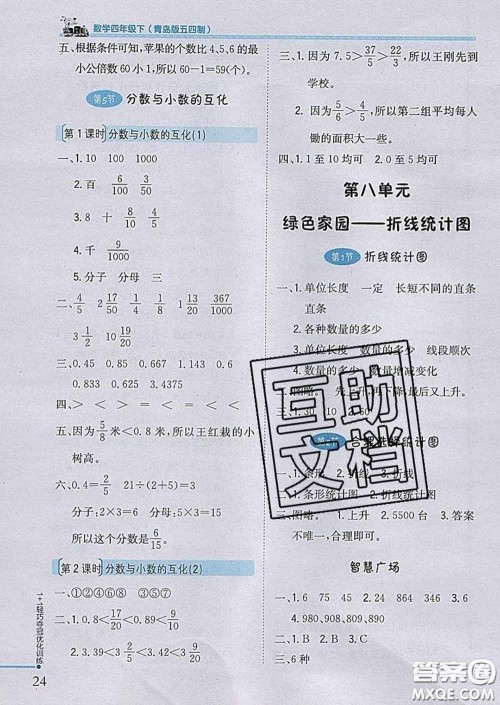 数学四年级下(青岛版五四制)
五、根据条件可知,苹果的个数比4,5,6的最
小公倍数60小1,所以60-1=59(个)。
第5节 分数与小数的互化
第1课时 分数与小数的互化(1)
一、1.10 100 1000
2.百 6/100 3/10
3.8 十 8/10 8/10
4.千 9/1000
5.分子 母分 分母
二、4/5 2 17/50 1/4 1 8/25 1 13/20 367/1000
3 1/2 10 19/20
三、0.45 0.84 0.667 0.222 0.44
0.833 0.625 3.125
四、> < = = < =
五、因为5/8米<0.8米,所以王红栽的小
树高。
六、0.4=2/5 21÷(2+5)=3
分子:2×3=6 分母:5×3=15
所以这个分数是6/15。
第2课时 分数与小数的互化(2)
一、①②④⑥⑧ ③⑤⑦
二、1.0.8<17/20 0.34<0.38<9/20
2.3.39<3 2/5 4.3<4.42<4 9/20
三、1.因为
学校。
2.因为5/6>4/5,所以第二组平均每人
勋的面积大一些。
四、1.1至10均可 2.0至4均可
第八单元
绿色家园——折线统计图
第1节 折线统计图
一、1.单位长度 一定 长短不同的直条
直条
2.各种数量的多少
3.单位长度 数量的多少 线段顺次
4.数量的多少 数量增减变化
互助
文档
一、1.条形
二、1.条形统计图
三、图略。 1.上升 2.5500台 3.答案
不唯一,合理即可。
智慧广场
一、1.45 2.15 3.94
4.980,908,890,809
二、
三、6种
1+1轻巧夺冠优化训练
24
答案圈
MXQE.COM